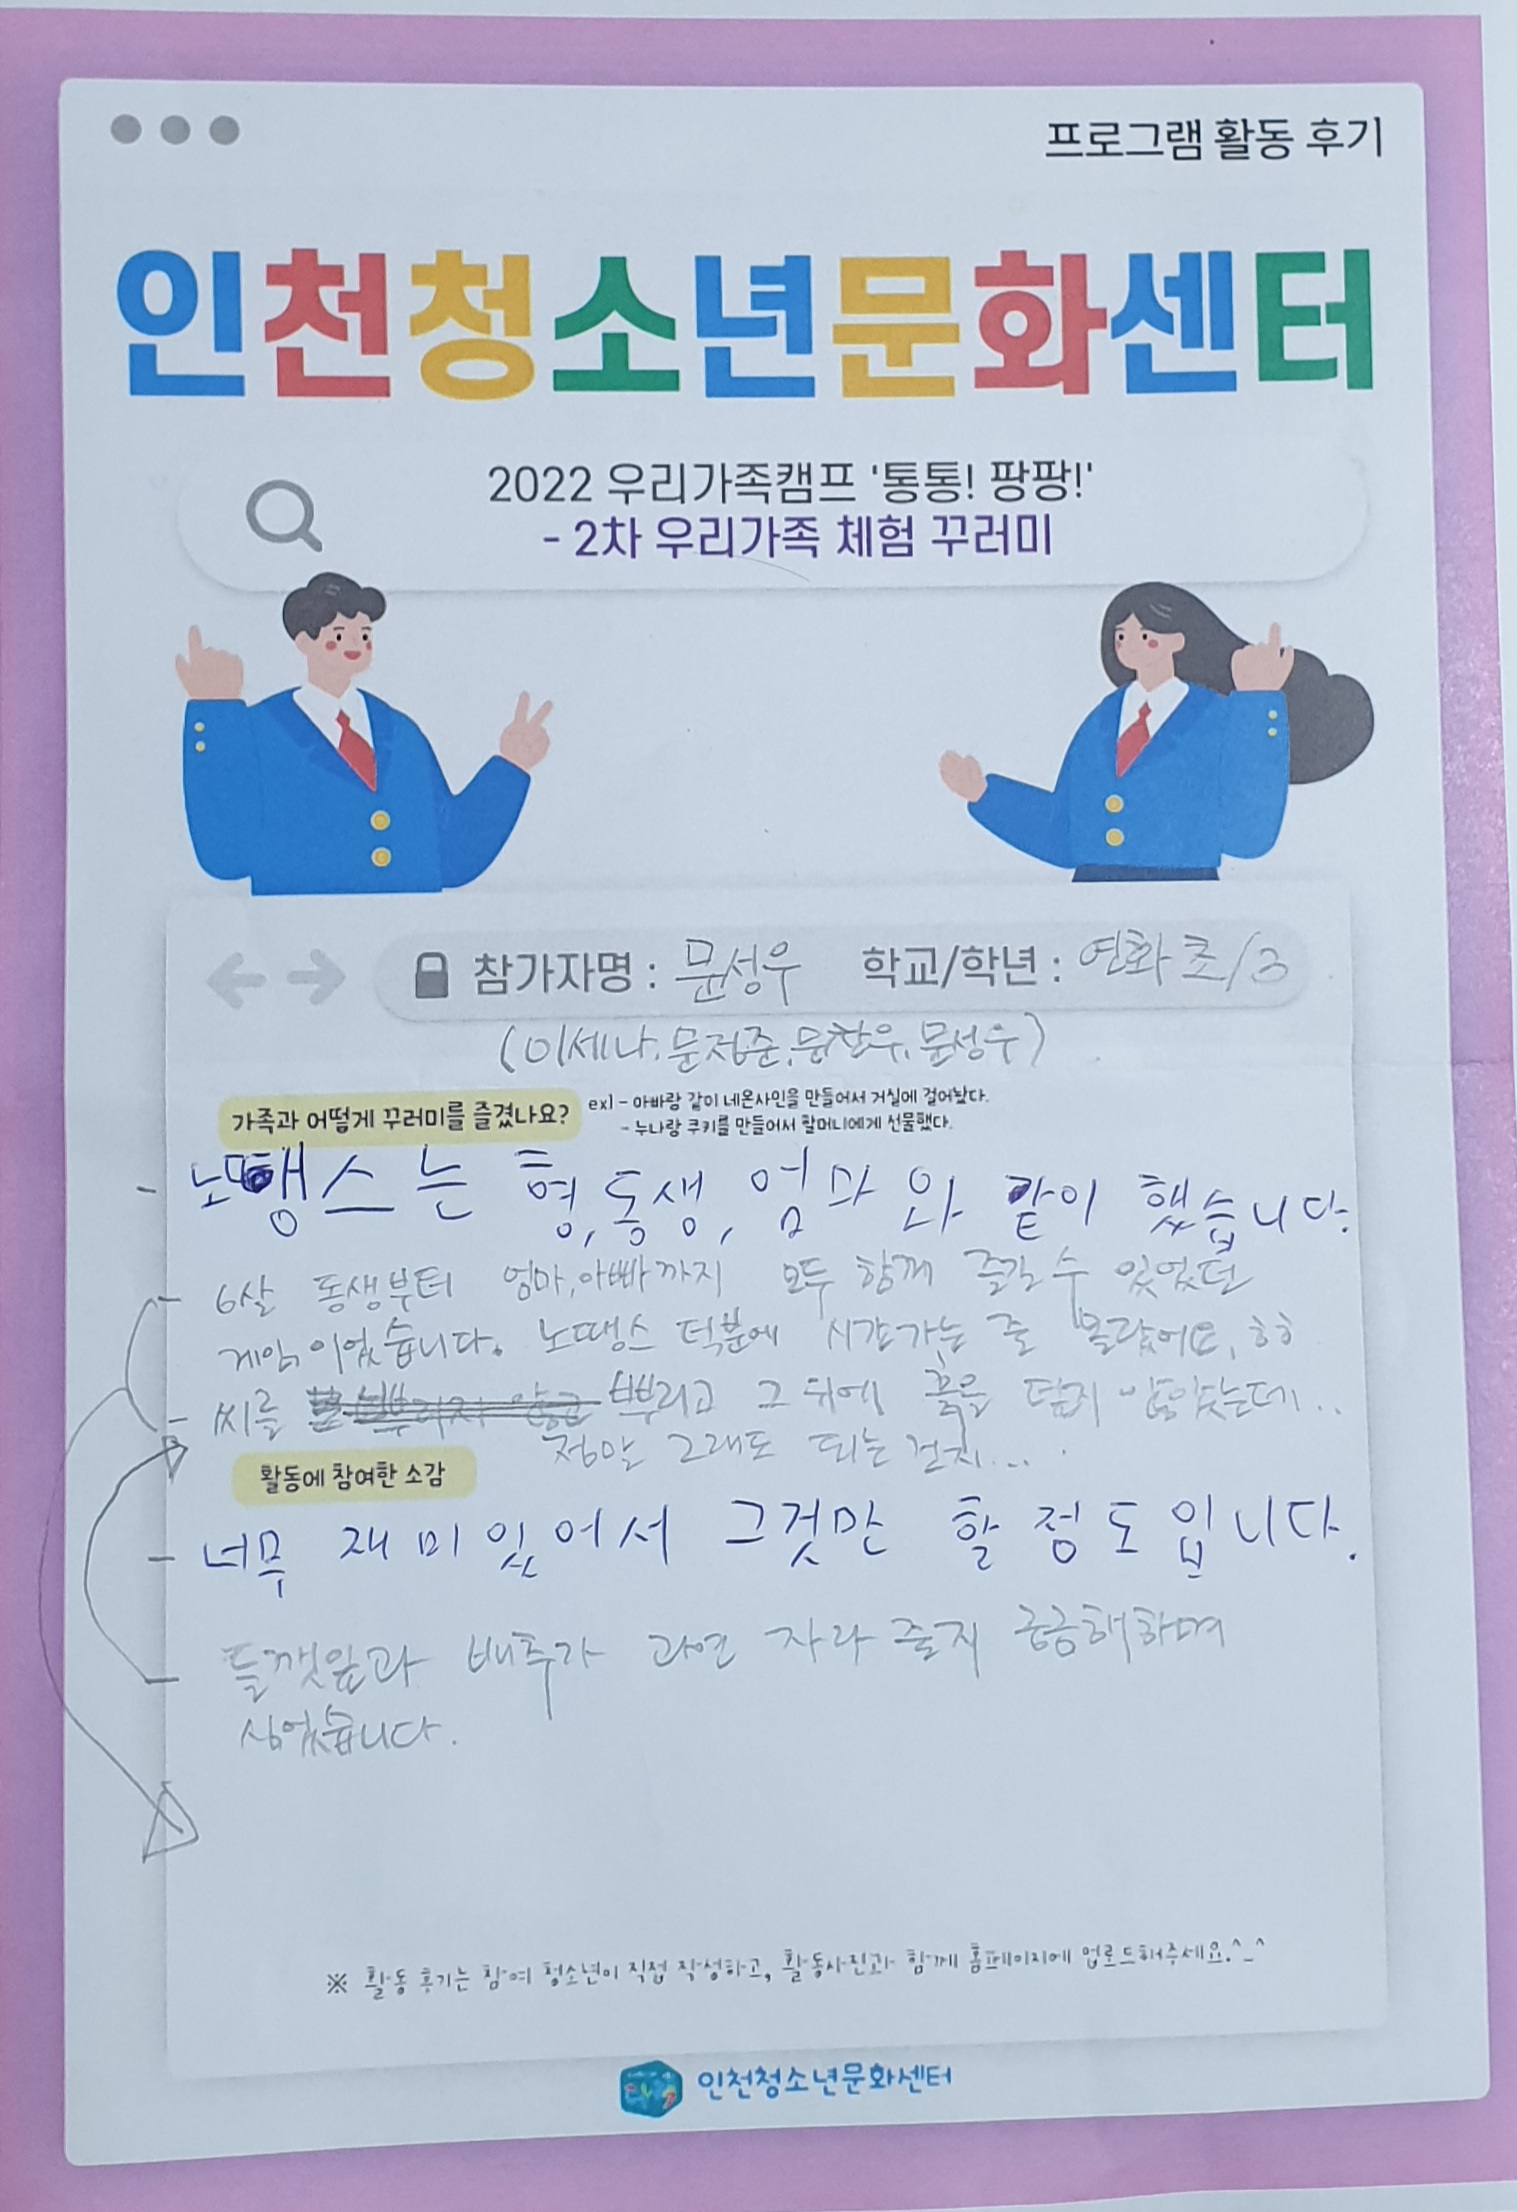 프로그램 활동 후기
인천청소년문화센터
2022 우리가족캠프 '통통! 팡팡!'
- 2차 우리가족 체험 꾸러미
참가자명 : 문성우 학교/학년 : 연화초/3
(이세나, 문정준, 문찬우, 문성우)
가족과 어떻게 꾸러미를 즐겼나요?
ex) - 아빠랑 같이 네온사인을 만들어서 거실에 걸어놨다.
- 누나랑 쿠키를 만들어서 할머니에게 선물했다.
- 노땡스는 형, 동생, 엄마와 같이 했습니다.
- 6살 동생부터 엄마, 아빠까지 모두 함께 즐길 수 있었던
게임이었습니다. 노땡스 덕분에 시간가는 줄 몰랐어요, ㅎㅎ
- 씨를 뿌리고 그 위에 흙을 덮지 않았는데..
정말 그래도 되는 건지...
활동에 참여한 소감
- 너무 재미있어서 그것만 할 정도입니다.
- 들깻잎과 배추가 과연 자라줄지 궁금해하며
심었습니다.
※ 활동 후기는 참여 청소년이 직접 작성하고, 활동사진과 함께 홈페이지에 업로드해주세요.^_^
인천청소년문화센터